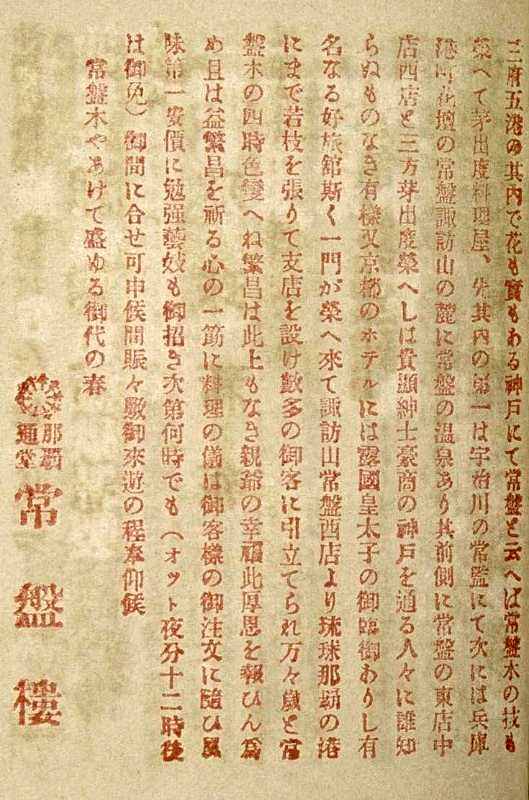 三府五港の其内で花も實もある神戸にて常盤と云へば常盤木の技も
榮へて芽出度料理屋、先其内の第一は宇治川の常盤にて次には兵庫
港町花壇の常盤諏訪山の麓に常盤の温泉あり其前側に常盤の東店中
店西店と三方芽出度榮へしは貴顯紳士豪商の神戸を通る人々に誰知
らぬものなき有樣又京都のホテルには露國皇太子の御臨御ありし有
名なる好旅館斯く一門が榮へ來て諏訪山常盤西店より琉球那覇の港
にまで若枝を張りて支店を設け數多の御客に引立てられ万々歳と常
盤木の四時色變へね繁昌は此上もなき親爺の幸福此厚恩を報ひん爲
め且は益繁昌を祈る心の一筋に料理の儀は御客樣の御注文に隨ひ風
味第一安價に勉强藝妓も御招き次第何時でも（オット夜分十二時後
は御免）御間に合せ可申候間賑々敷御來遊の程奉仰候
常盤木やあけて盛ゆる御代の春
那覇
通堂
常盤樓